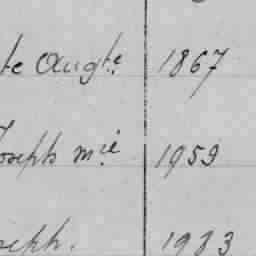 te Augte 1867
Joseph mie 1959
seph. 1983